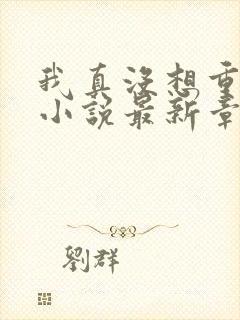 我真没想重
小说最新章
劉群